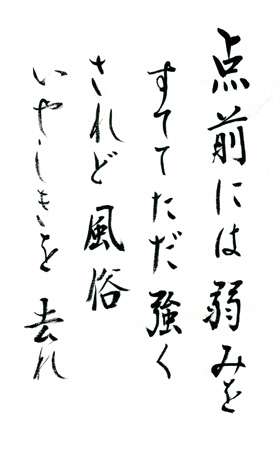 点前には弱みを
すててただ強く
されど風俗
いやしきを去れ